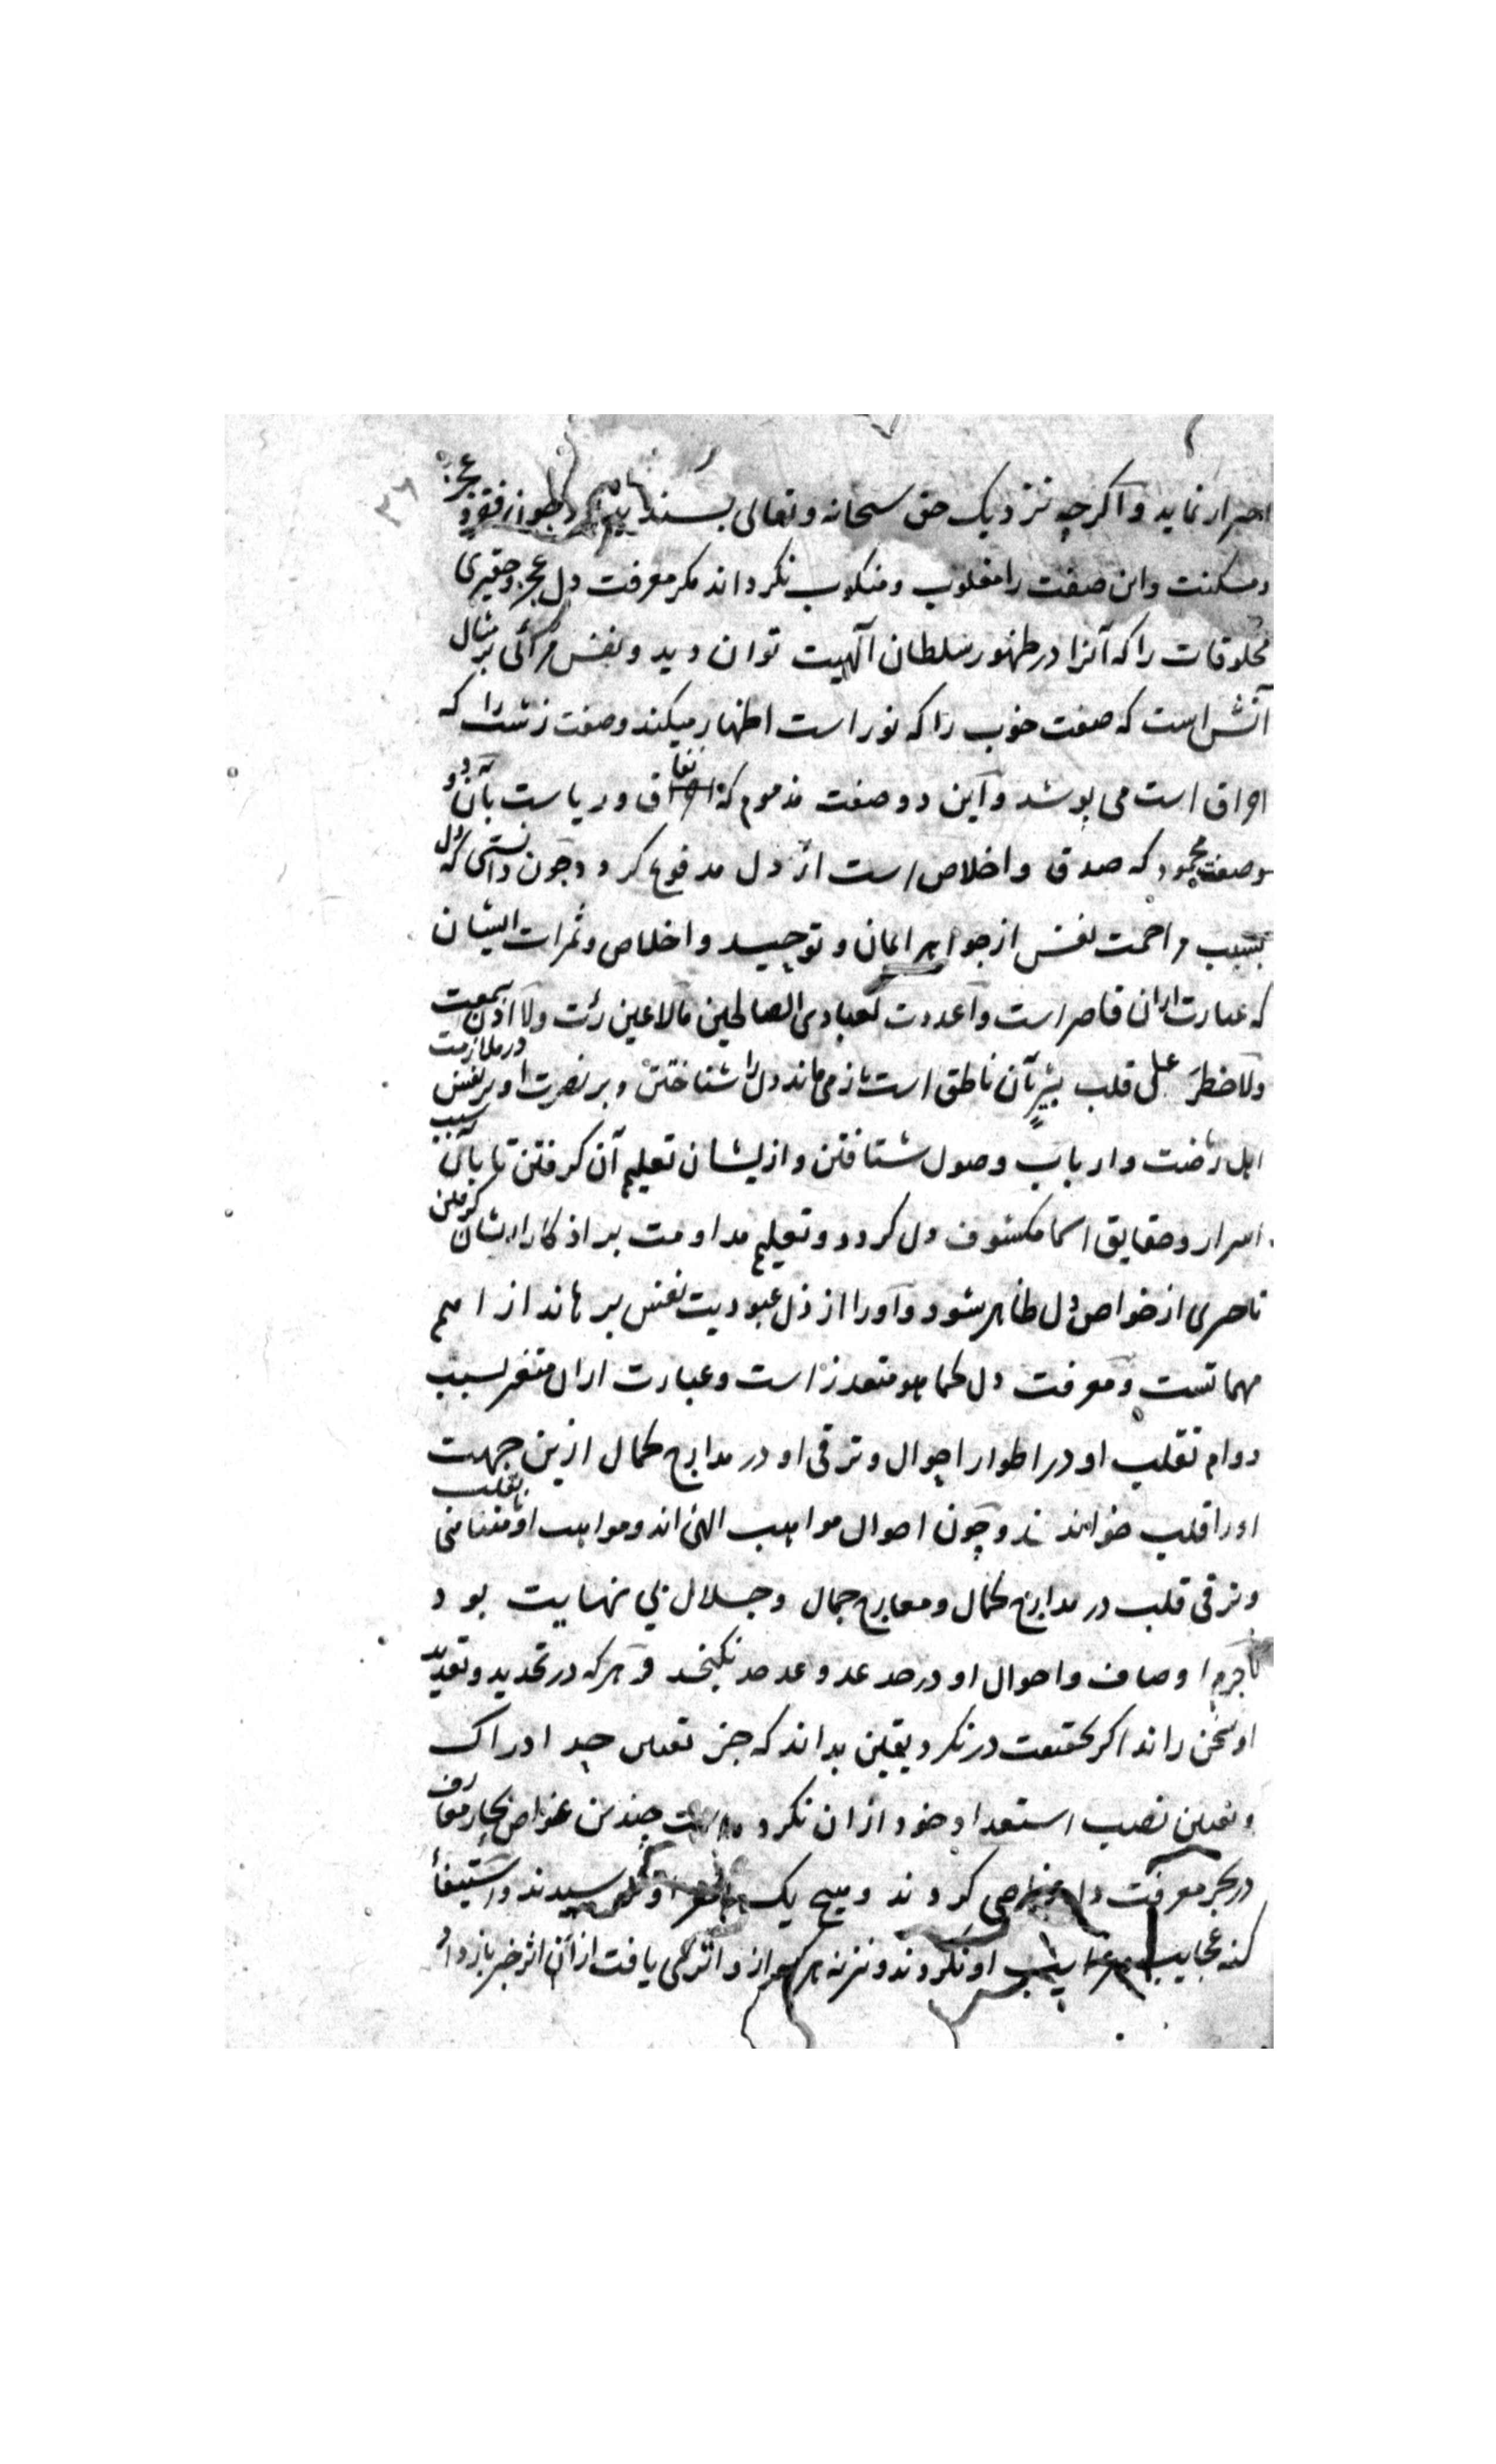 احتراز نماید و اکرچه نزدیک حق سبحانه و تعالی بسندیده بود چون فقر و عجز
و مسکنت و این صفت را مغلوب و منکوب نکرداند مکر معرفت دل عجز و حقیری
مخلوقات را که آنرا در ظهور سلطان آلهیت توان دید و نفس مرائی بر مثال
آتش است که صفت خوب را که نور است اظهار میکند و صفت زشت را که
احراق است می پوشد و این دو صفت مذموم که نفاق و ریاست بآن دو
صفت محمود که صدق و اخلاص است از دل مدفوع کردد چون دانستی که دل
بسبب مزاحمت نفس از جواهر ایمان و توحید و اخلاص و ثمرات ایشان
که عبارت ازان قاصر است و اعددت لعبادی الصالحین مالا عین رئت ولا اذن سمعت
ولا خطر علی قلب بشر بآن ناطق است باز می ماند دل را شناختن و بر نصرت او بر نفس در ملازمت
اهل ریاضت و ارباب وصول شتافتن و از یشان تعلیم آن کرفتن تا بآن سبب
اسرار و حقایق اسما مکشوف دل کردد و تعلیم مداومت بر اذکار از یشان کرفتن
تا سری از خواص دل ظاهر شود و او را از ذل عبودیت نفس برهاند از اهم
مهماتست و معرفت دل کما هو متعذر است و عبارت ازان متعسر بسبب
دوام تقلیب او در اطوار احوال و ترقی او در مدارج کمال ازین جهت
او را قلب خوانند و چون احوال مواهب الهی اند و مواهب او نامتناهی تقلب
و ترقی قلب در مدارج کمال و معارج جمال و جلال بی نهایت بود
لاجرم اوصاف و احوال او در حد عد و عد حد نکنجد و هرکه در تحدید و تعدید
او سخن راند اکر بحقیقت در نکرد یقین بداند که جز تعیین حد ادراک
و تعیین نصیب استعداد خود ازان نکرده است چندین غواص بحار معارف
در بحر معرفت دل غواصی کردند و هیچ یک بقعر او نرسیدند و استیفاء
کنه عجایب و غرایب او نکردند و نیز نه هرکه ازو اثری یافت از آن اثر خبر باز داد